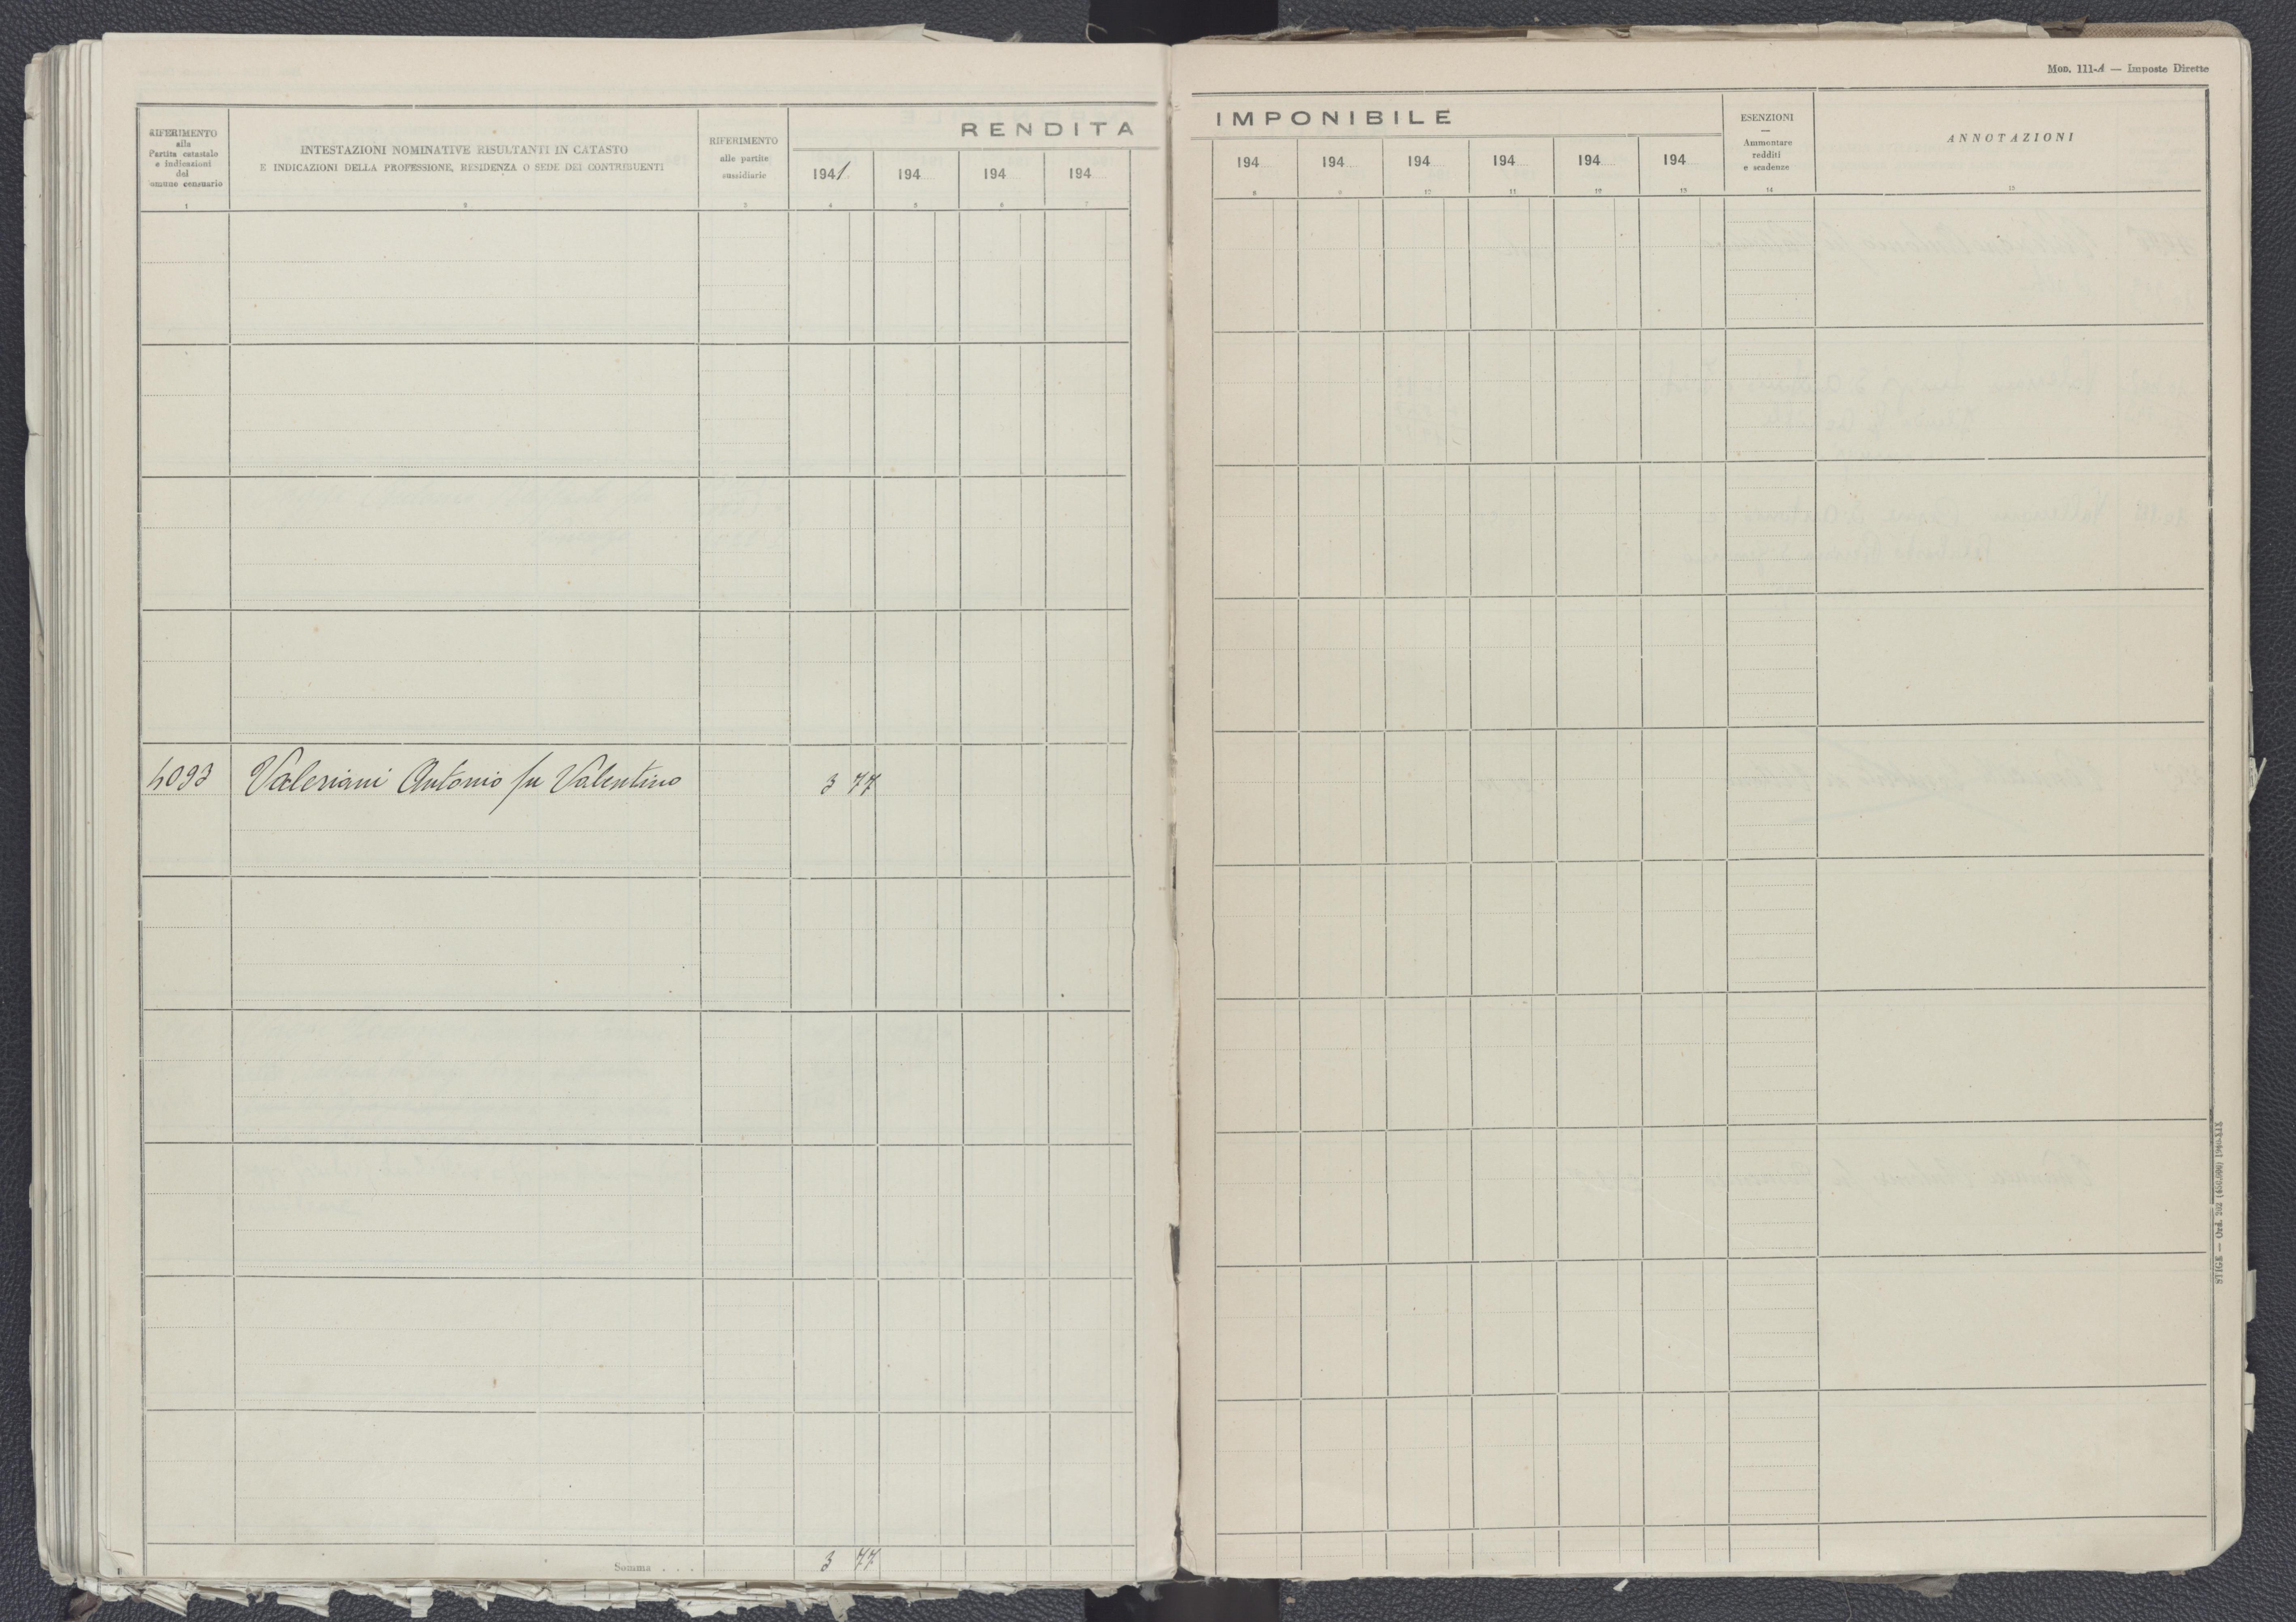 Mod. 111-A — Imposte Dirette
RIFERIMENTO
alla
Partita catastale
e indicazioni
del
omune censuario
1
INTESTAZIONI NOMINATIVE RISULTANTI IN CATASTO
E INDICAZIONI DELLA PROFESSIONE, RESIDENZA O SEDE DEI CONTRIBUENTI
2
RIFERIMENTO
alle partite
sussidiarie
3
RENDITA
1941 194 194 194
4 5 6 7
IMPONIBILE
194 194 194 194 194 194
8 9 10 11 12 13
ESENZIONI
—
Ammontare
redditi
e scadenze
14
ANNOTAZIONI
15
4093 Valeriani Antonio fu Valentino 3 77
Somma . . . 3 77
STIGE — Ord. 202 (450.000) 1940-XIX